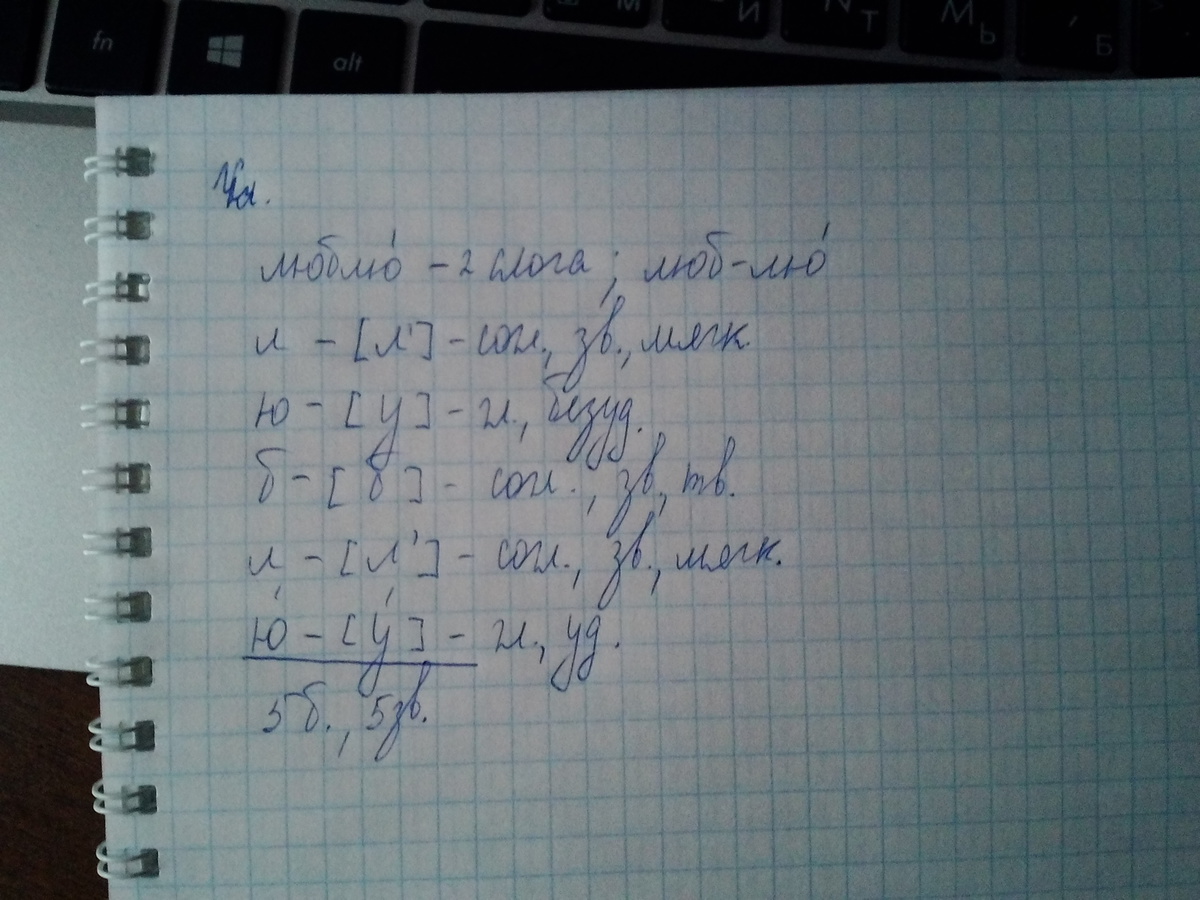 fn alt М И N Т М Ь Б
люблю́ - 2 слога; люб-лю́
л - [л'] - согл., зв., мягк.
ю - [у] - гл., безуд.
б - [б] - согл., зв., тв.
л - [л'] - согл., зв., мягк.
ю́ - [у́] - гл., уд.
5 б., 5 зв.